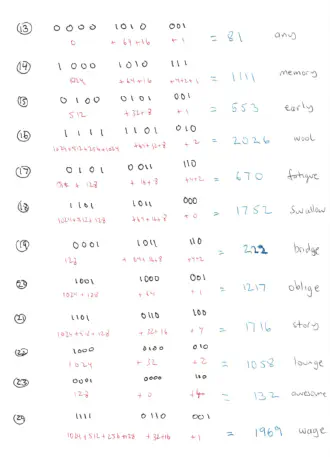 13 0000 1010 001
0 + 64+16 + 1 = 81 any
14 1000 1010 111
1024 + 64+16 +4+2+1 = 1111 memory
15 0100 0101 001
512 + 32+8 + 1 = 553 early
16 1111 1101 010
+ 2 = 2026 wool
17 0101 0011 110
+ 128 + 16+8 +4+2 = 670 fatigue
18 1101 1011 000
1024+512+128 +64+16+8 + 0 = 1752 swallow
19 0001 1011 110
128 + 64+16+8 +4+2 = 222 bridge
20 1001 1000 001
1024 + 128 + 64 + 1 = 1217 oblige
21 1101 0110 100
1024+512+128 + 32+16 + 4 = 1716 story
22 1000 0100 010
1024 + 32 + 2 = 1058 lounge
23 0001 0000 100
128 + 0 +4 = 132 awesome
24 1111 0110 001
1024+512+256+128 + 32+16 + 1 = 1969 wage